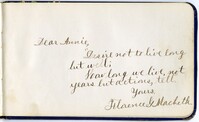 Dear Annie,
Desire not to live long
but well;
How long we live, not
years but actions, tell.
Yours,
Florence L. Macbeth.